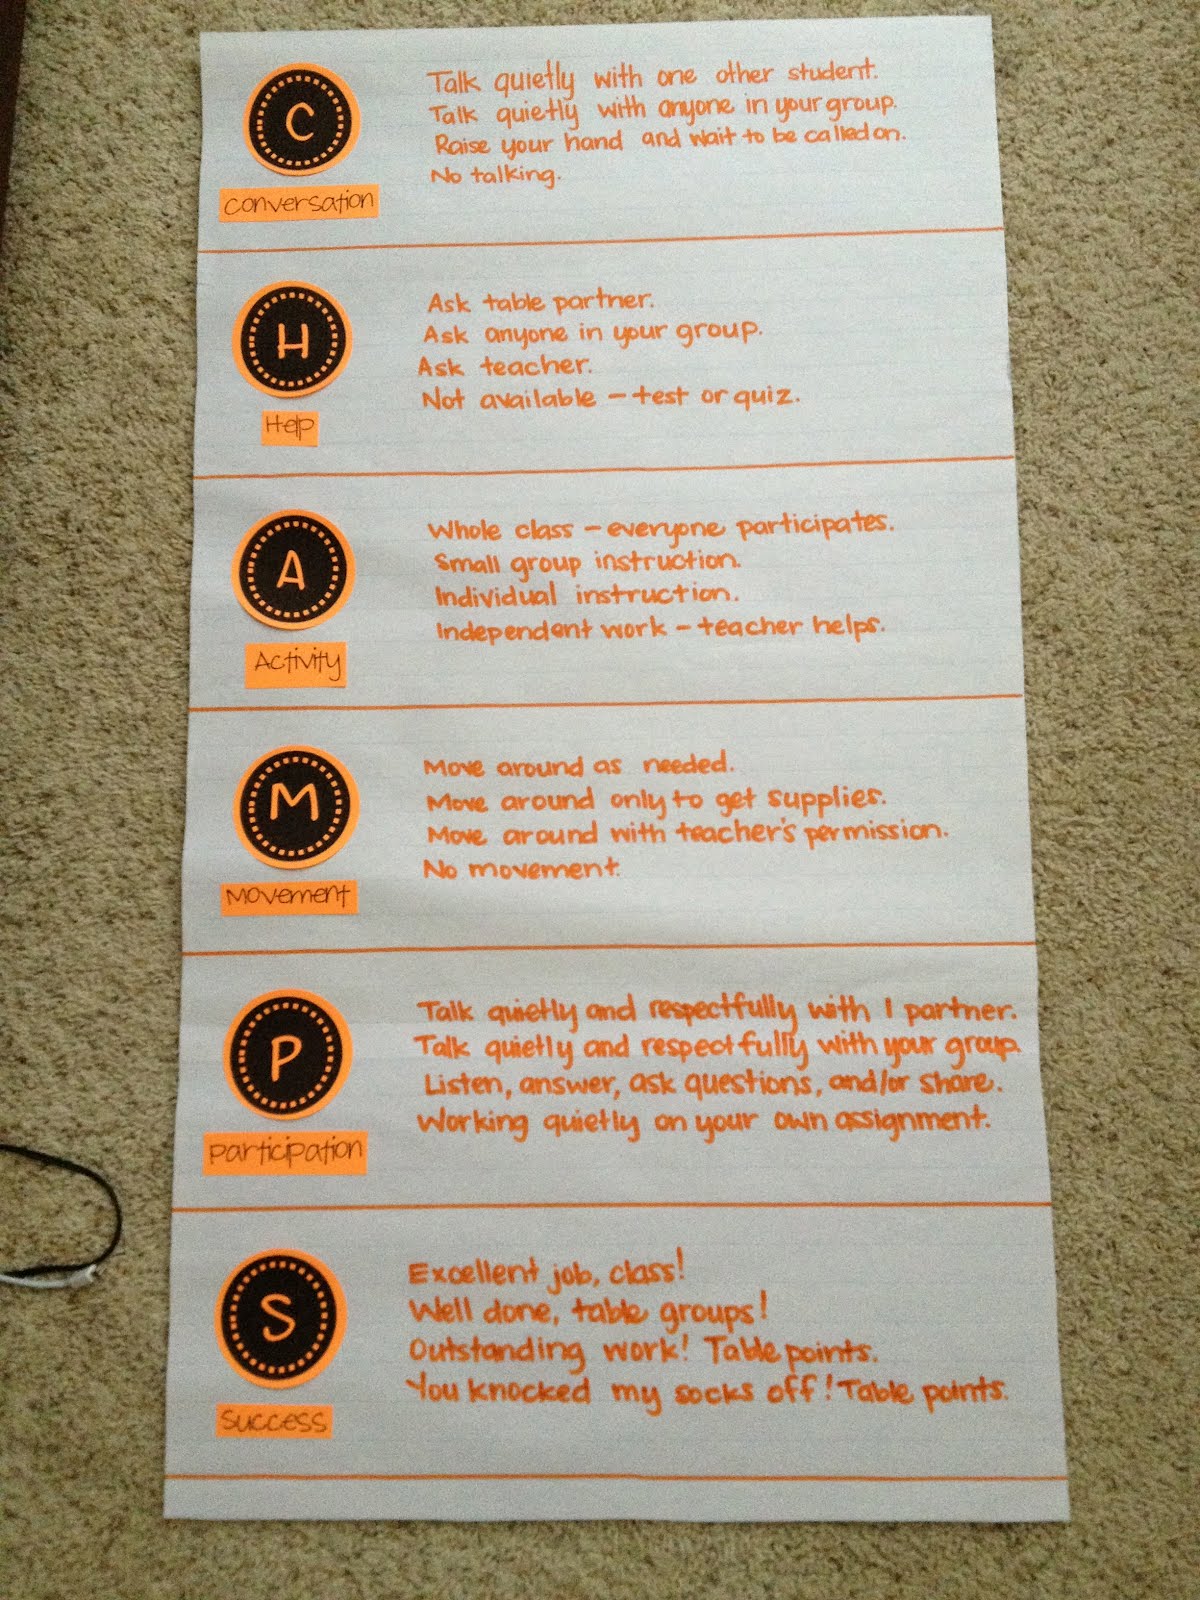 C
Conversation
Talk quietly with one other student.
Talk quietly with anyone in your group.
Raise your hand and wait to be called on.
No talking.
H
Help
Ask table partner.
Ask anyone in your group.
Ask teacher.
Not available – test or quiz.
A
Activity
Whole class – everyone participates.
Small group instruction.
Individual instruction.
Independent work – teacher helps.
M
Movement
Move around as needed.
Move around only to get supplies.
Move around with teacher's permission.
No movement.
P
Participation
Talk quietly and respectfully with 1 partner.
Talk quietly and respectfully with your group.
Listen, answer, ask questions, and/or share.
Working quietly on your own assignment.
S
Success
Excellent job, class!
Well done, table groups!
Outstanding work! Table points.
You knocked my socks off! Table points.